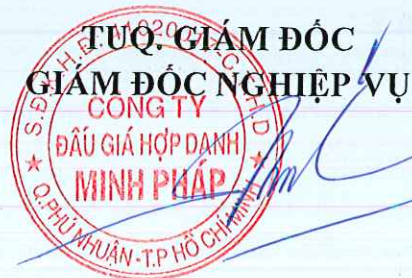 TUQ. GIÁM ĐỐC
GIÁM ĐỐC NGHIỆP VỤ
CÔNG TY
ĐẤU GIÁ HỢP DANH
MINH PHÁP
Q.PHÚ NHUẬN-T.P HỒ CHÍ MINH